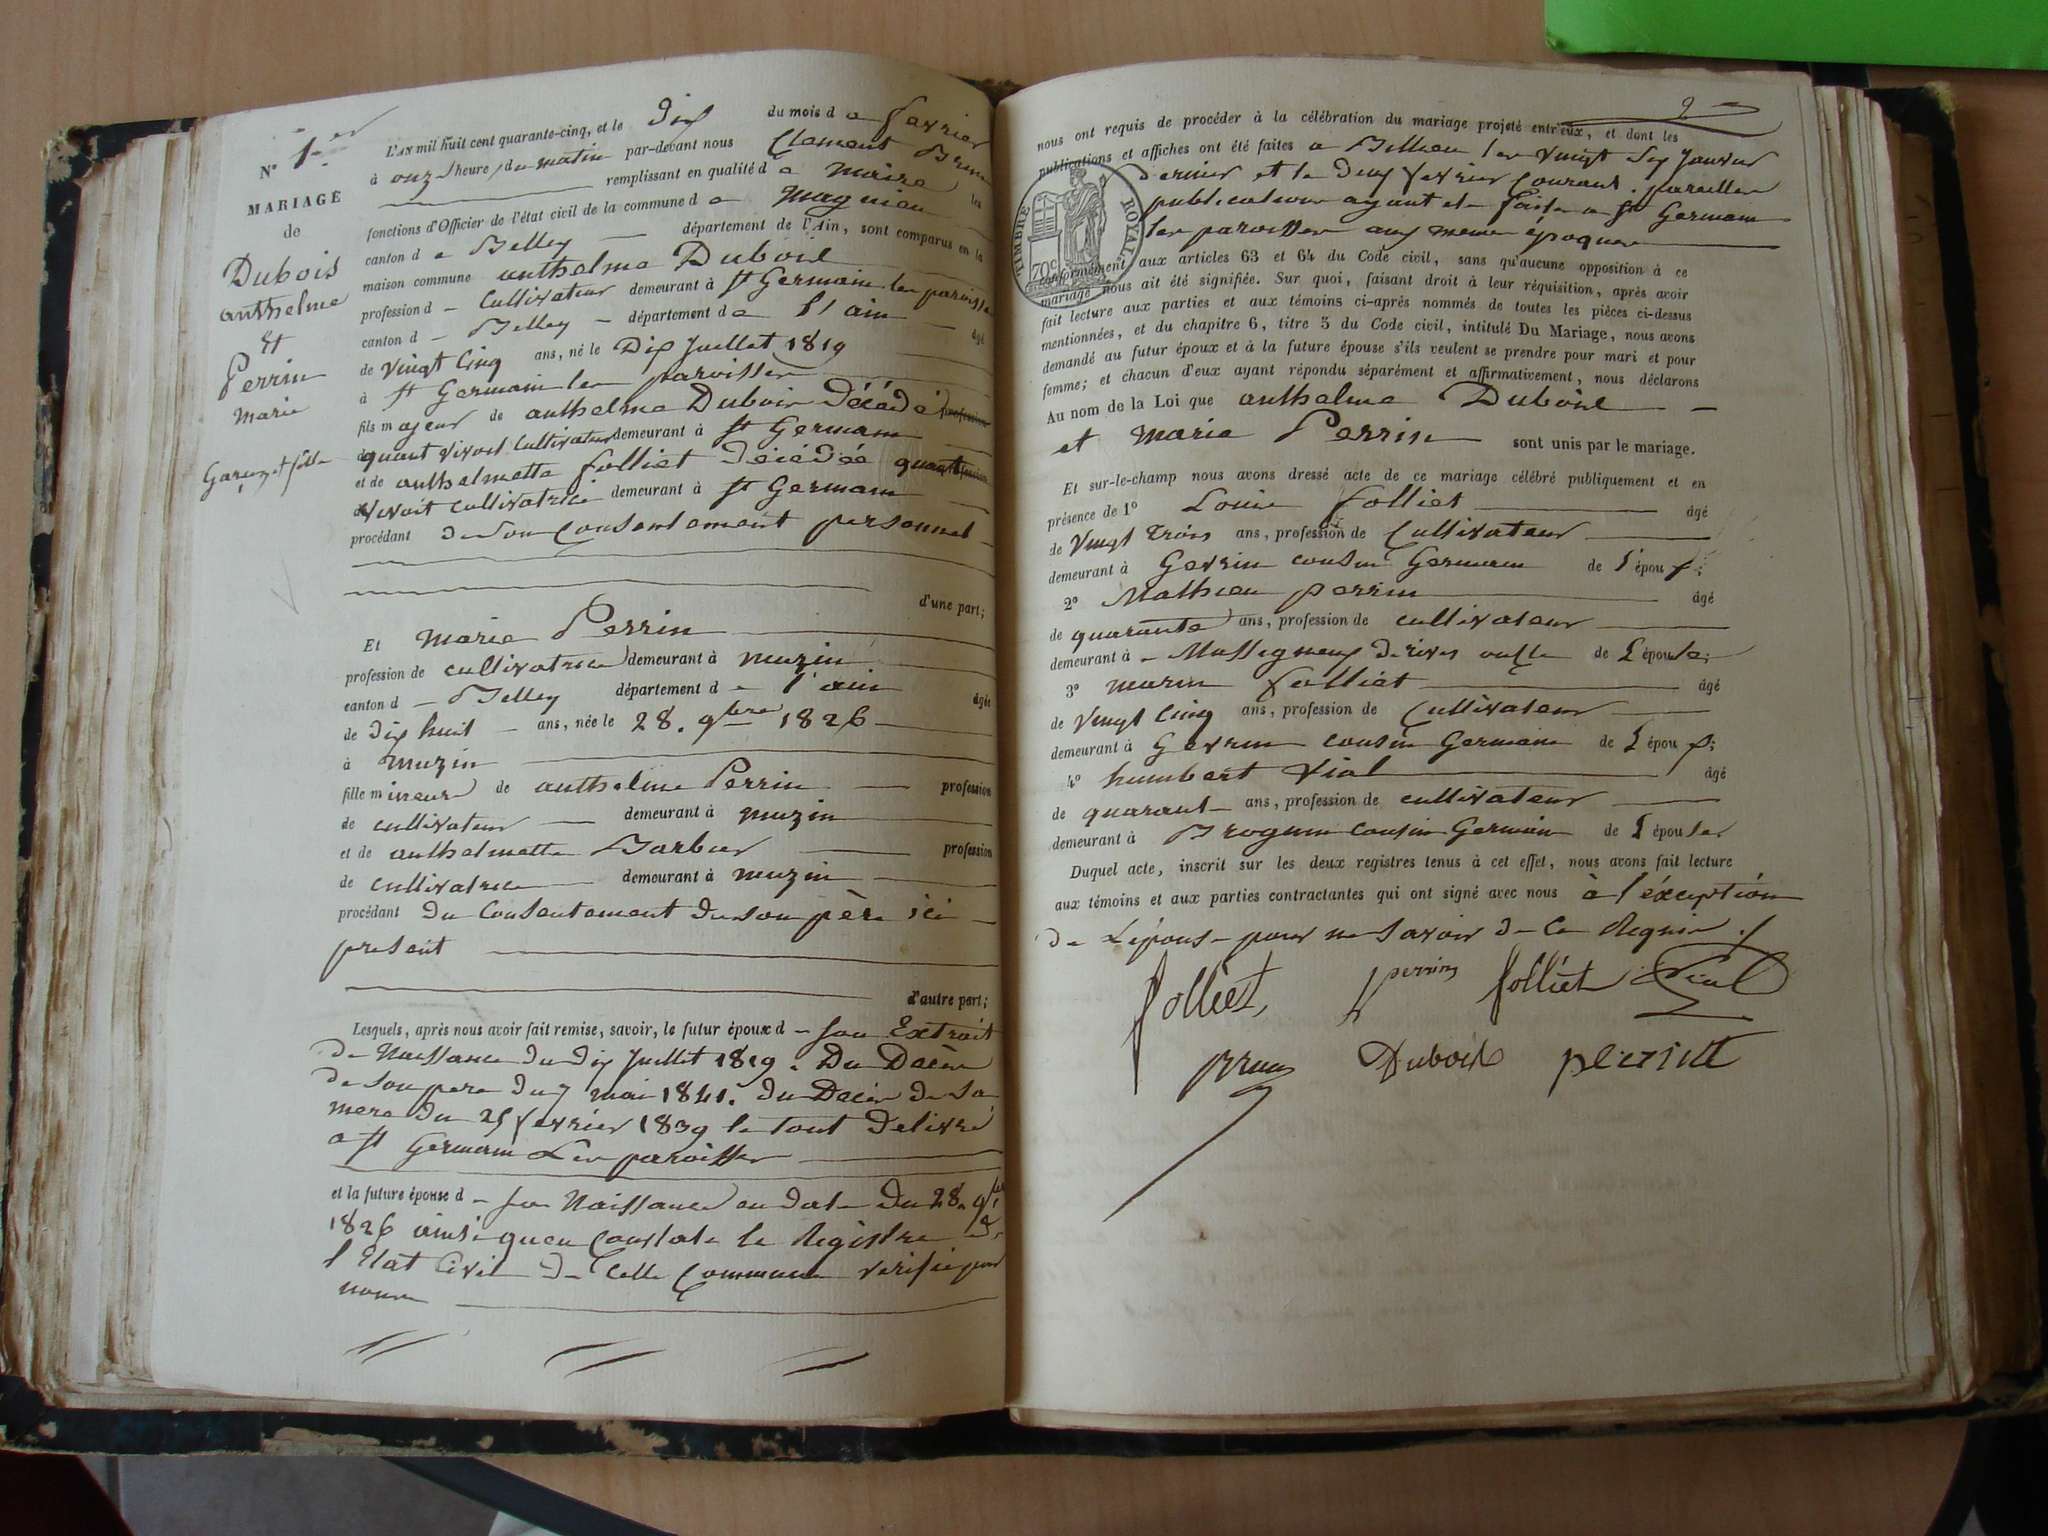 N° 1er
MARIAGE
de
Dubois
anthelme
Et
Perrin
marie
L'AN mil huit cent quarante-cinq, et le Dix du mois de favrier
à onze heure du matin par-devant nous Clement Brun
remplissant en qualité de maire les
fonctions d'Officier de l'état civil de la commune de magnieu
canton de Belley département de l'Ain, sont comparus en la
maison commune anthelme Dubois
profession d Cultivateur demeurant à St Germain les paroisses
canton d Belley département de l'ain âgé
de vingt Cinq ans, né le Dix Juillet 1819
à St Germain les paroisses
fils majeur de anthelme Dubois Décédé profession
quant vivoit Cultivateur demeurant à St Germain
et de anthelmette folliet décédée quant
vivoit cultivatrice demeurant à St Germain
procédant de son Consentement personnel
d'une part;
Et marie Perrin
profession de cultivatrice demeurant à muzin
canton d Belley département de l'ain âgée
de dix huit ans, née le 28. 9bre 1826
à muzin
fille mineure de anthelme Perrin profession
de cultivateur demeurant à muzin
et de anthelmette Barbier profession
de cultivatrice demeurant à muzin
procédant du Consentement de son père ici
present
d'autre part;
Lesquels, après nous avoir fait remise, savoir, le futur époux de son Extrait
de Naissance du dix Juillet 1819. Du Décès
de son pere du 7 mai 1841. du Décès de sa
mere du 25 fevrier 1839 le tout Delivré
a St Germain Les paroisses
et la future épouse de sa Naissance en date du 28. 9bre
1826 ainsi qu'en Constate le Régistre de
l'Etat Civil de Cette Commune verifié par
nous
2
nous ont requis de procéder à la célébration du mariage projeté entr'eux, et dont les
publications et affiches ont été faites a Billieu les vingt six Janvier
dernier et le deux fevrier Courant. pareilles
publications ayant ete faites a St Germain
les paroisses aux meme époques
TIMBRE ROYAL
70c
conformément aux articles 63 et 64 du Code civil, sans qu'aucune opposition à ce
mariage nous ait été signifiée. Sur quoi, faisant droit à leur réquisition, après avoir
fait lecture aux parties et aux témoins ci-après nommés de toutes les pièces ci-dessus
mentionnées, et du chapitre 6, titre 5 du Code civil, intitulé Du Mariage, nous avons
demandé au futur époux et à la future épouse s'ils veulent se prendre pour mari et pour
femme; et chacun d'eux ayant répondu séparément et affirmativement, nous déclarons
Au nom de la Loi que anthelme Dubois
et marie Perrin sont unis par le mariage.
Et sur-le-champ nous avons dressé acte de ce mariage célébré publiquement et en
présence de 1° Louis folliet âgé
de vingt trois ans, profession de Cultivateur
demeurant à Gevrin cousin Germain de l'époux;
2° Mathieu perrin âgé
de quarante ans, profession de cultivateur
demeurant à Massigneux de rives oncle de L'épouse;
3° marin folliet âgé
de vingt Cinq ans, profession de Cultivateur
demeurant à Gevrin cousin Germain de L'époux;
4° humbert vial âgé
de quarant ans, profession de cultivateur
demeurant à Brognin cousin Germain de L'épouse
Duquel acte, inscrit sur les deux registres tenus à cet effet, nous avons fait lecture
aux témoins et aux parties contractantes qui ont signé avec nous à l'éxception
de L'épouse pour ne savoir de ce Requis
folliet perrin folliet Vial
Brun Dubois perrin